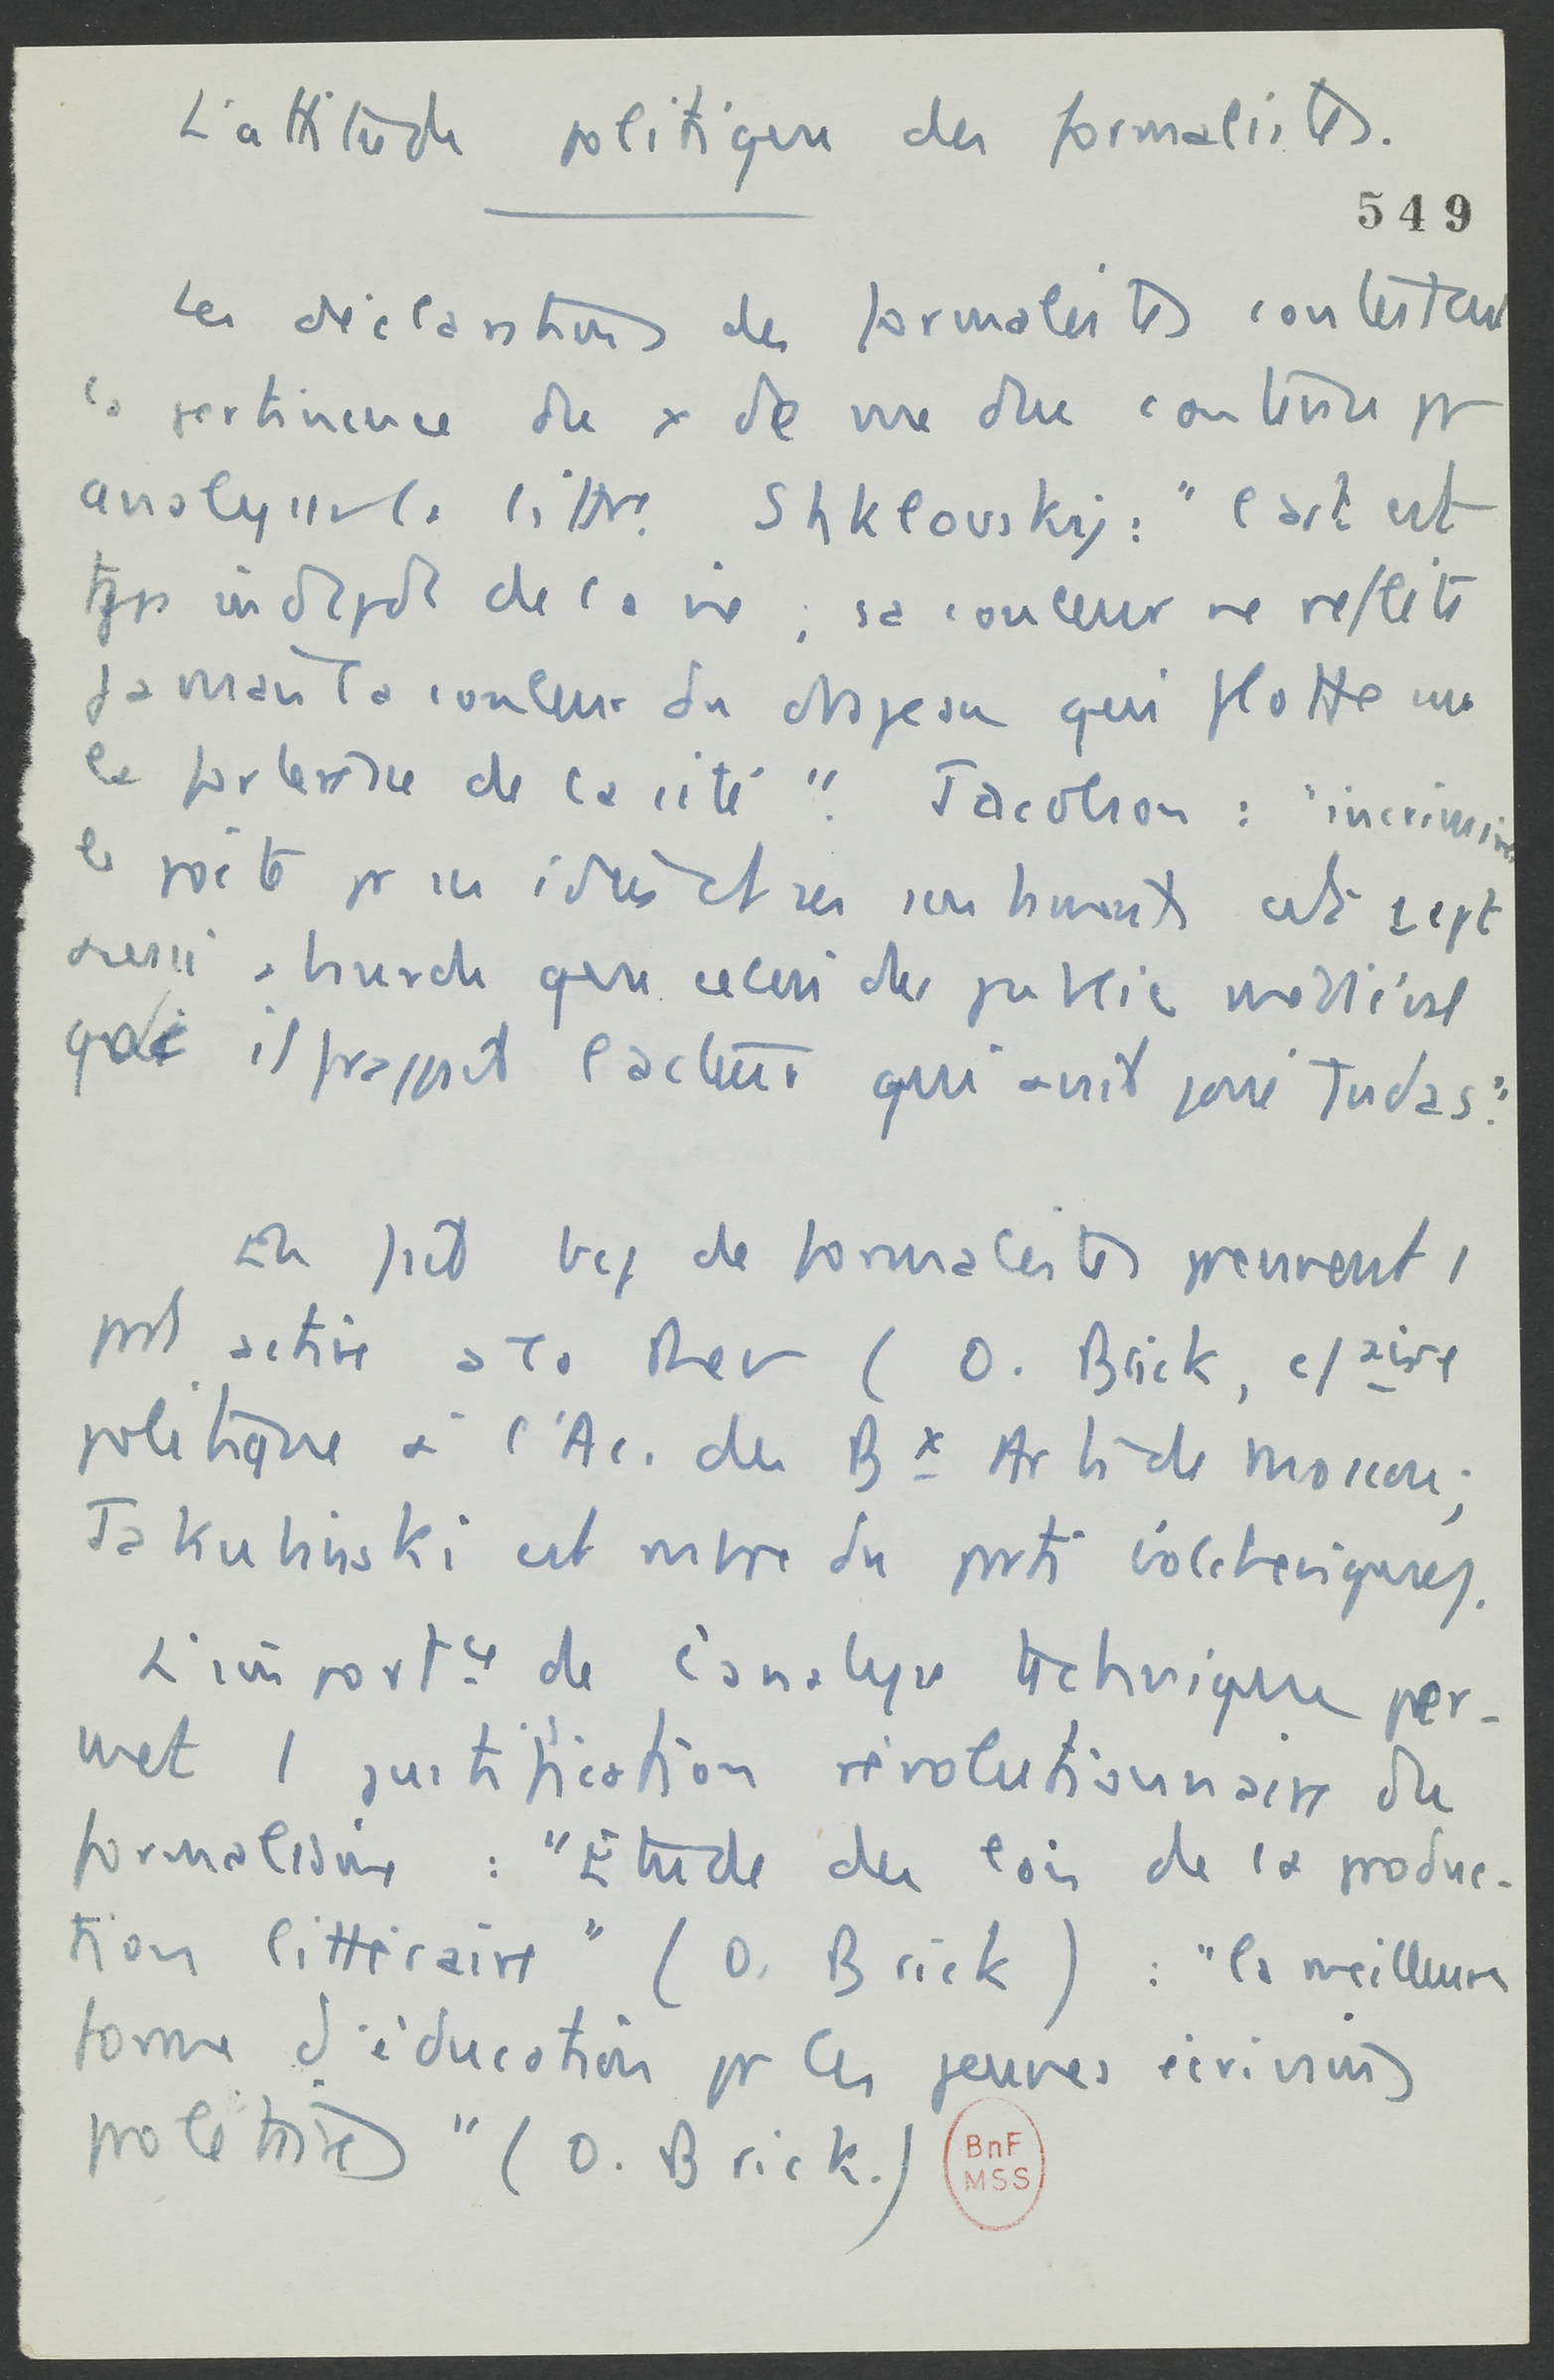 L'attitude politique des formalistes.
549
Les déclarations des formalistes contestent
la pertinence du x de vue du contenu pr
analyser la littre. Shklovskij : "l'art est
tjrs indépdt de la vie ; sa couleur ne reflète
jamais la couleur du drapeau qui flotte sur
la forteresse de la cité". Jacobson : "incriminer
le poète pr ses idées et ses sentiments est
aussi absurde que celui du public médiéval
qd il frappait l'acteur qui avait joué Judas".
En fait bcp de formalistes prennent 1
part active à la Rev ( O. Brick, c/aire
politique à l'Ac. des Bx Arts de Moscou ;
Jakubinski est mbre du parti bolchevique).
L'importce de l'analyse technique per-
met 1 justification révolutionnaire du
formalisme : "Étude des lois de la produc-
tion littéraire" ( O. Brick ) : "la meilleure
forme d'éducation pr les jeunes écrivains
prolétaires" ( O. Brick.)
BnF
MSS